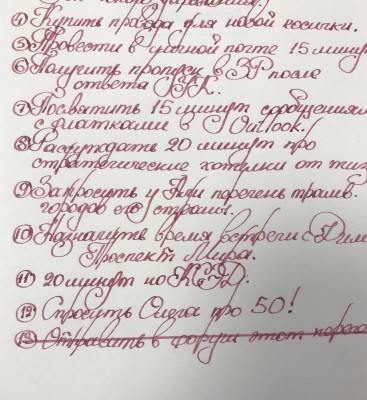 ④ Купить провода для новой косички.
⑤ Провести в личной почте 15 минут
⑥ Получить пропуск в ЗР после
ответа
⑦ Посвятить 15 минут сообщениям
с пиатками в Outlook!
⑧ Рассуждать 20 минут про
стратегические хотелки от
⑨ Запросить у Ани перечень трамв.
городов его страны.
⑩ Назначить время встречи с Дим
Проспект Мира.
⑪ 20 минут по
⑫ Спросить Олега про 50!
⑬ Отправить в форум этот